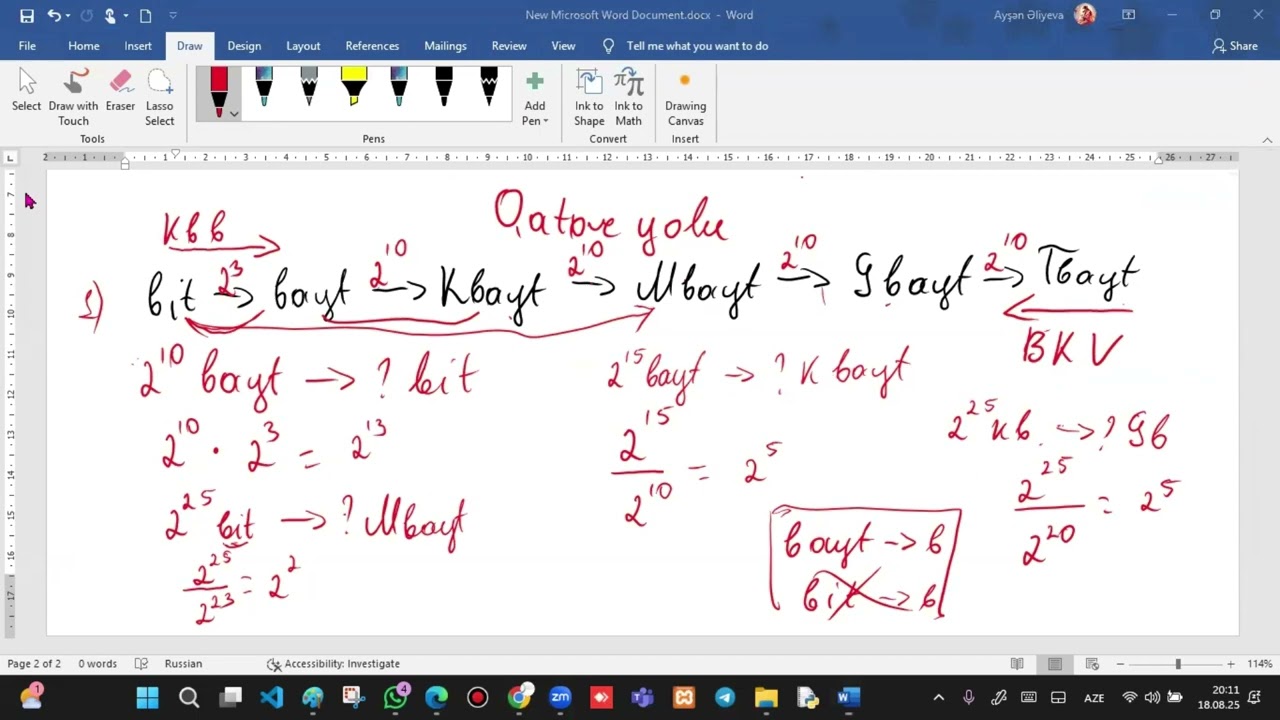 New Microsoft Word Document.docx - Word
Ayşən Əliyeva
File Home Insert Draw Design Layout References Mailings Review View Tell me what you want to do Share
Select Draw with Touch Eraser Lasso Select Add Pen Ink to Shape Ink to Math Drawing Canvas
Tools Pens Convert Insert
2 1 1 2 3 4 5 6 7 8 9 10 11 12 13 14 15 16 17 18 19 20 21 22 23 24 25 26 27
Qatove yolu
KBB →
1) bit 2³→ bayt 2¹⁰→ Kbayt 2¹⁰→ Mbayt 2¹⁰→ Gbayt 2¹⁰→ Tbayt
← BKV
2¹⁰ bayt → ? bit
2¹⁰ · 2³ = 2¹³
2²⁵ bit → ? Mbayt
2²⁵/2²³ = 2²
2¹⁵ bayt → ? K bayt
2¹⁵/2¹⁰ = 2⁵
2²⁵ Kb → ? Gb
2²⁵/2²⁰ = 2⁵
bayt → b
bit → b
Page 2 of 2 0 words Russian Accessibility: Investigate 114%
1 4 zm AZE 20:11
18.08.25